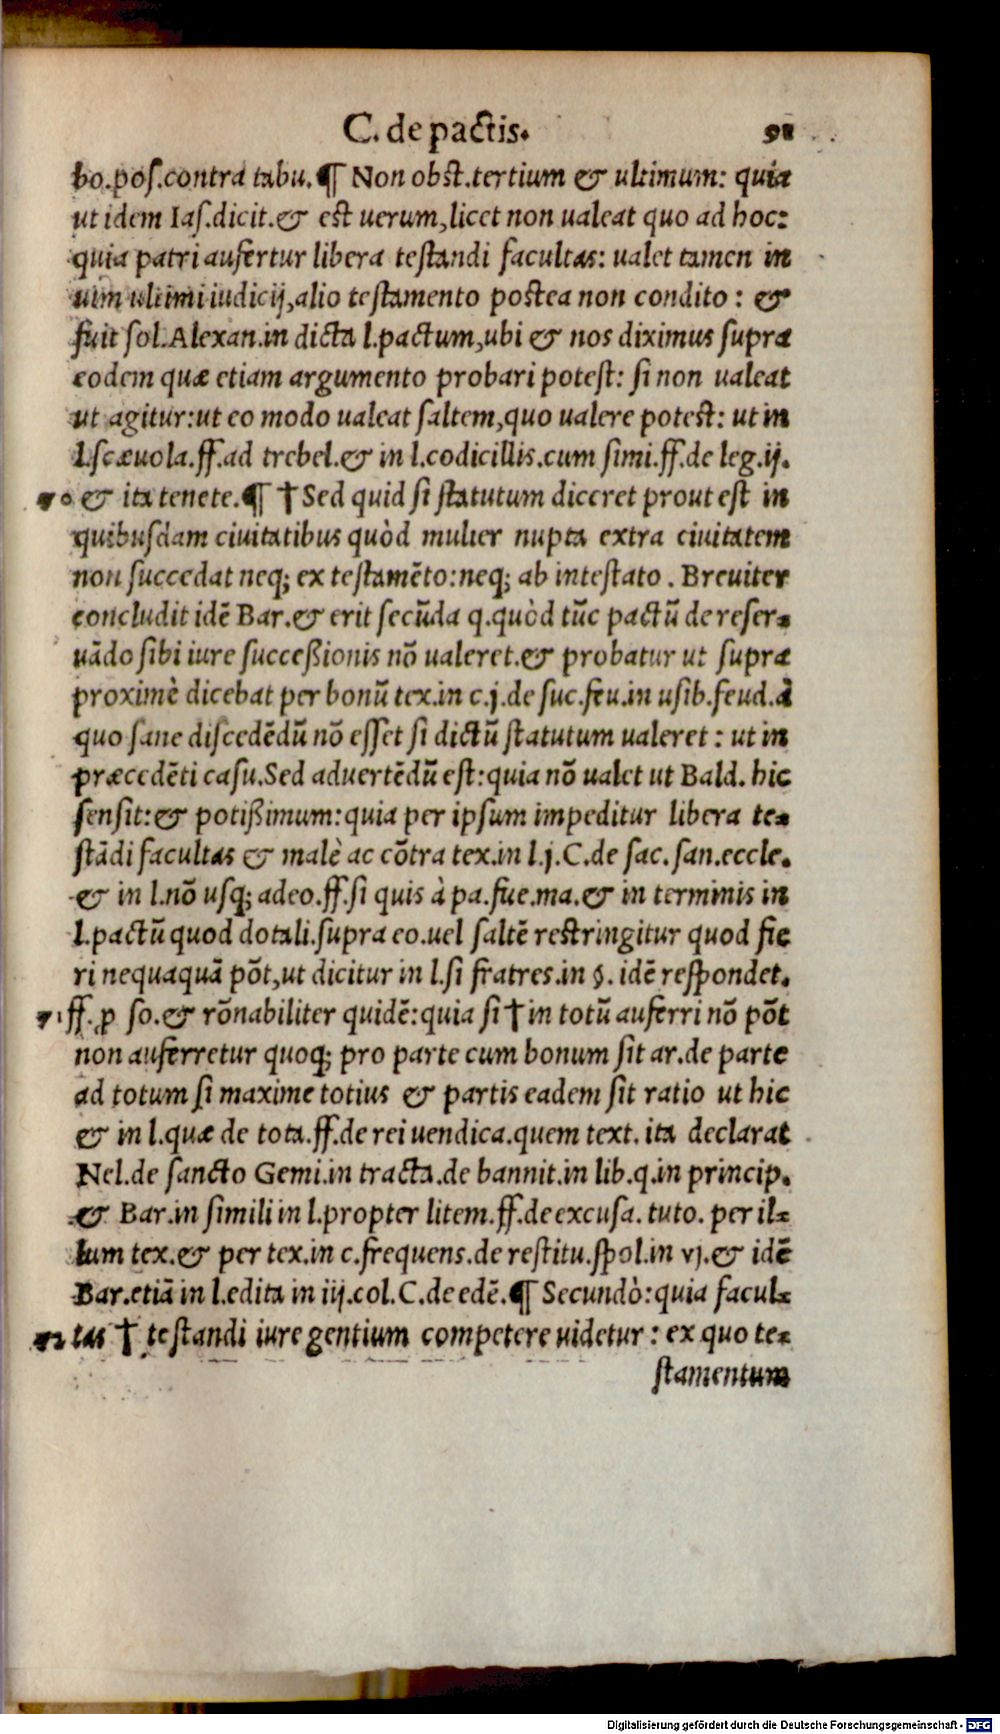 C. de pactis. 91
bo.pos.contra tabu.¶ Non obst.tertium & ultimum: quia
ut idem Ias.dicit.& est uerum,licet non ualeat quo ad hoc:
quia patri aufertur libera testandi facultas: ualet tamen in
uim ultimi iudicij,alio testamento postea non condito : &
fuit sol.Alexan.in dicta l.pactum,ubi & nos diximus supra
eodem quæ etiam argumento probari potest: si non ualeat
ut agitur:ut eo modo ualeat saltem,quo ualere potest: ut in
l.scæuola.ff.ad trebel.& in l.codicillis.cum simi.ff.de leg.ij.
70 & ita tenete.¶ † Sed quid si statutum diceret prout est in
quibusdam ciuitatibus quòd mulier nupta extra ciuitatem
non succedat neq; ex testamẽto:neq; ab intestato . Breuiter
concludit idẽ Bar.& erit secũda q.quòd tũc pactũ de reser-
uãdo sibi iure successionis nõ ualeret.& probatur ut supra
proximè dicebat per bonũ tex.in c.j.de suc.feu.in usib.feud.à
quo sane discedẽdũ nõ esset si dictũ statutum ualeret : ut in
præcedẽti casu.Sed aduertẽdũ est:quia nõ ualet ut Bald. hic
sensit:& potissimum:quia per ipsum impeditur libera te-
stãdi facultas & malè ac cõtra tex.in l.j.C.de sac.san.eccle.
& in l.nõ usq; adeo.ff.si quis à pa.fue.ma.& in terminis in
l.pactũ quod dotali.supra eo.uel saltẽ restringitur quod fie
ri nequaquã põt,ut dicitur in l.si fratres.in §. idẽ respondet.
71 ff. ꝓ so.& rõnabiliter quidẽ:quia si † in totũ auferri nõ põt
non auferretur quoq; pro parte cum bonum sit ar.de parte
ad totum si maxime totius & partis eadem sit ratio ut hic
& in l.quæ de tota.ff.de rei uendica.quem text. ita declarat
Nel.de sancto Gemi.in tracta.de bannit.in lib.q.in princip.
& Bar.in simili in l.propter litem.ff.de excusa. tuto. per il-
lum tex.& per tex.in c.frequens.de restitu.spol.in vj.& idẽ
Bar.etiã in l.edita in iij.col.C.de edẽ.¶ Secundò:quia facul-
72 tas † testandi iure gentium competere uidetur : ex quo te-
stamentum
Digitalisierung gefördert durch die Deutsche Forschungsgemeinschaft - DFG